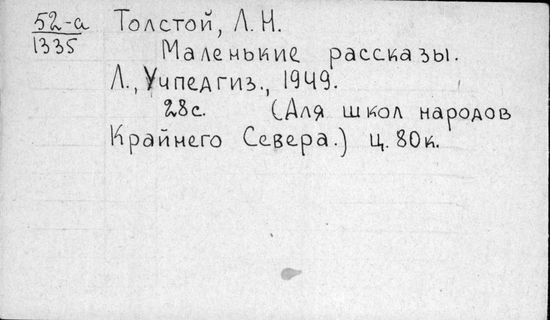 52-а Толстой, Л.Н.
1335
Маленькие рассказы.
Л., Учпедгиз., 1949.
28с. (Для школ народов
Крайнего Севера.) ц. 80к.